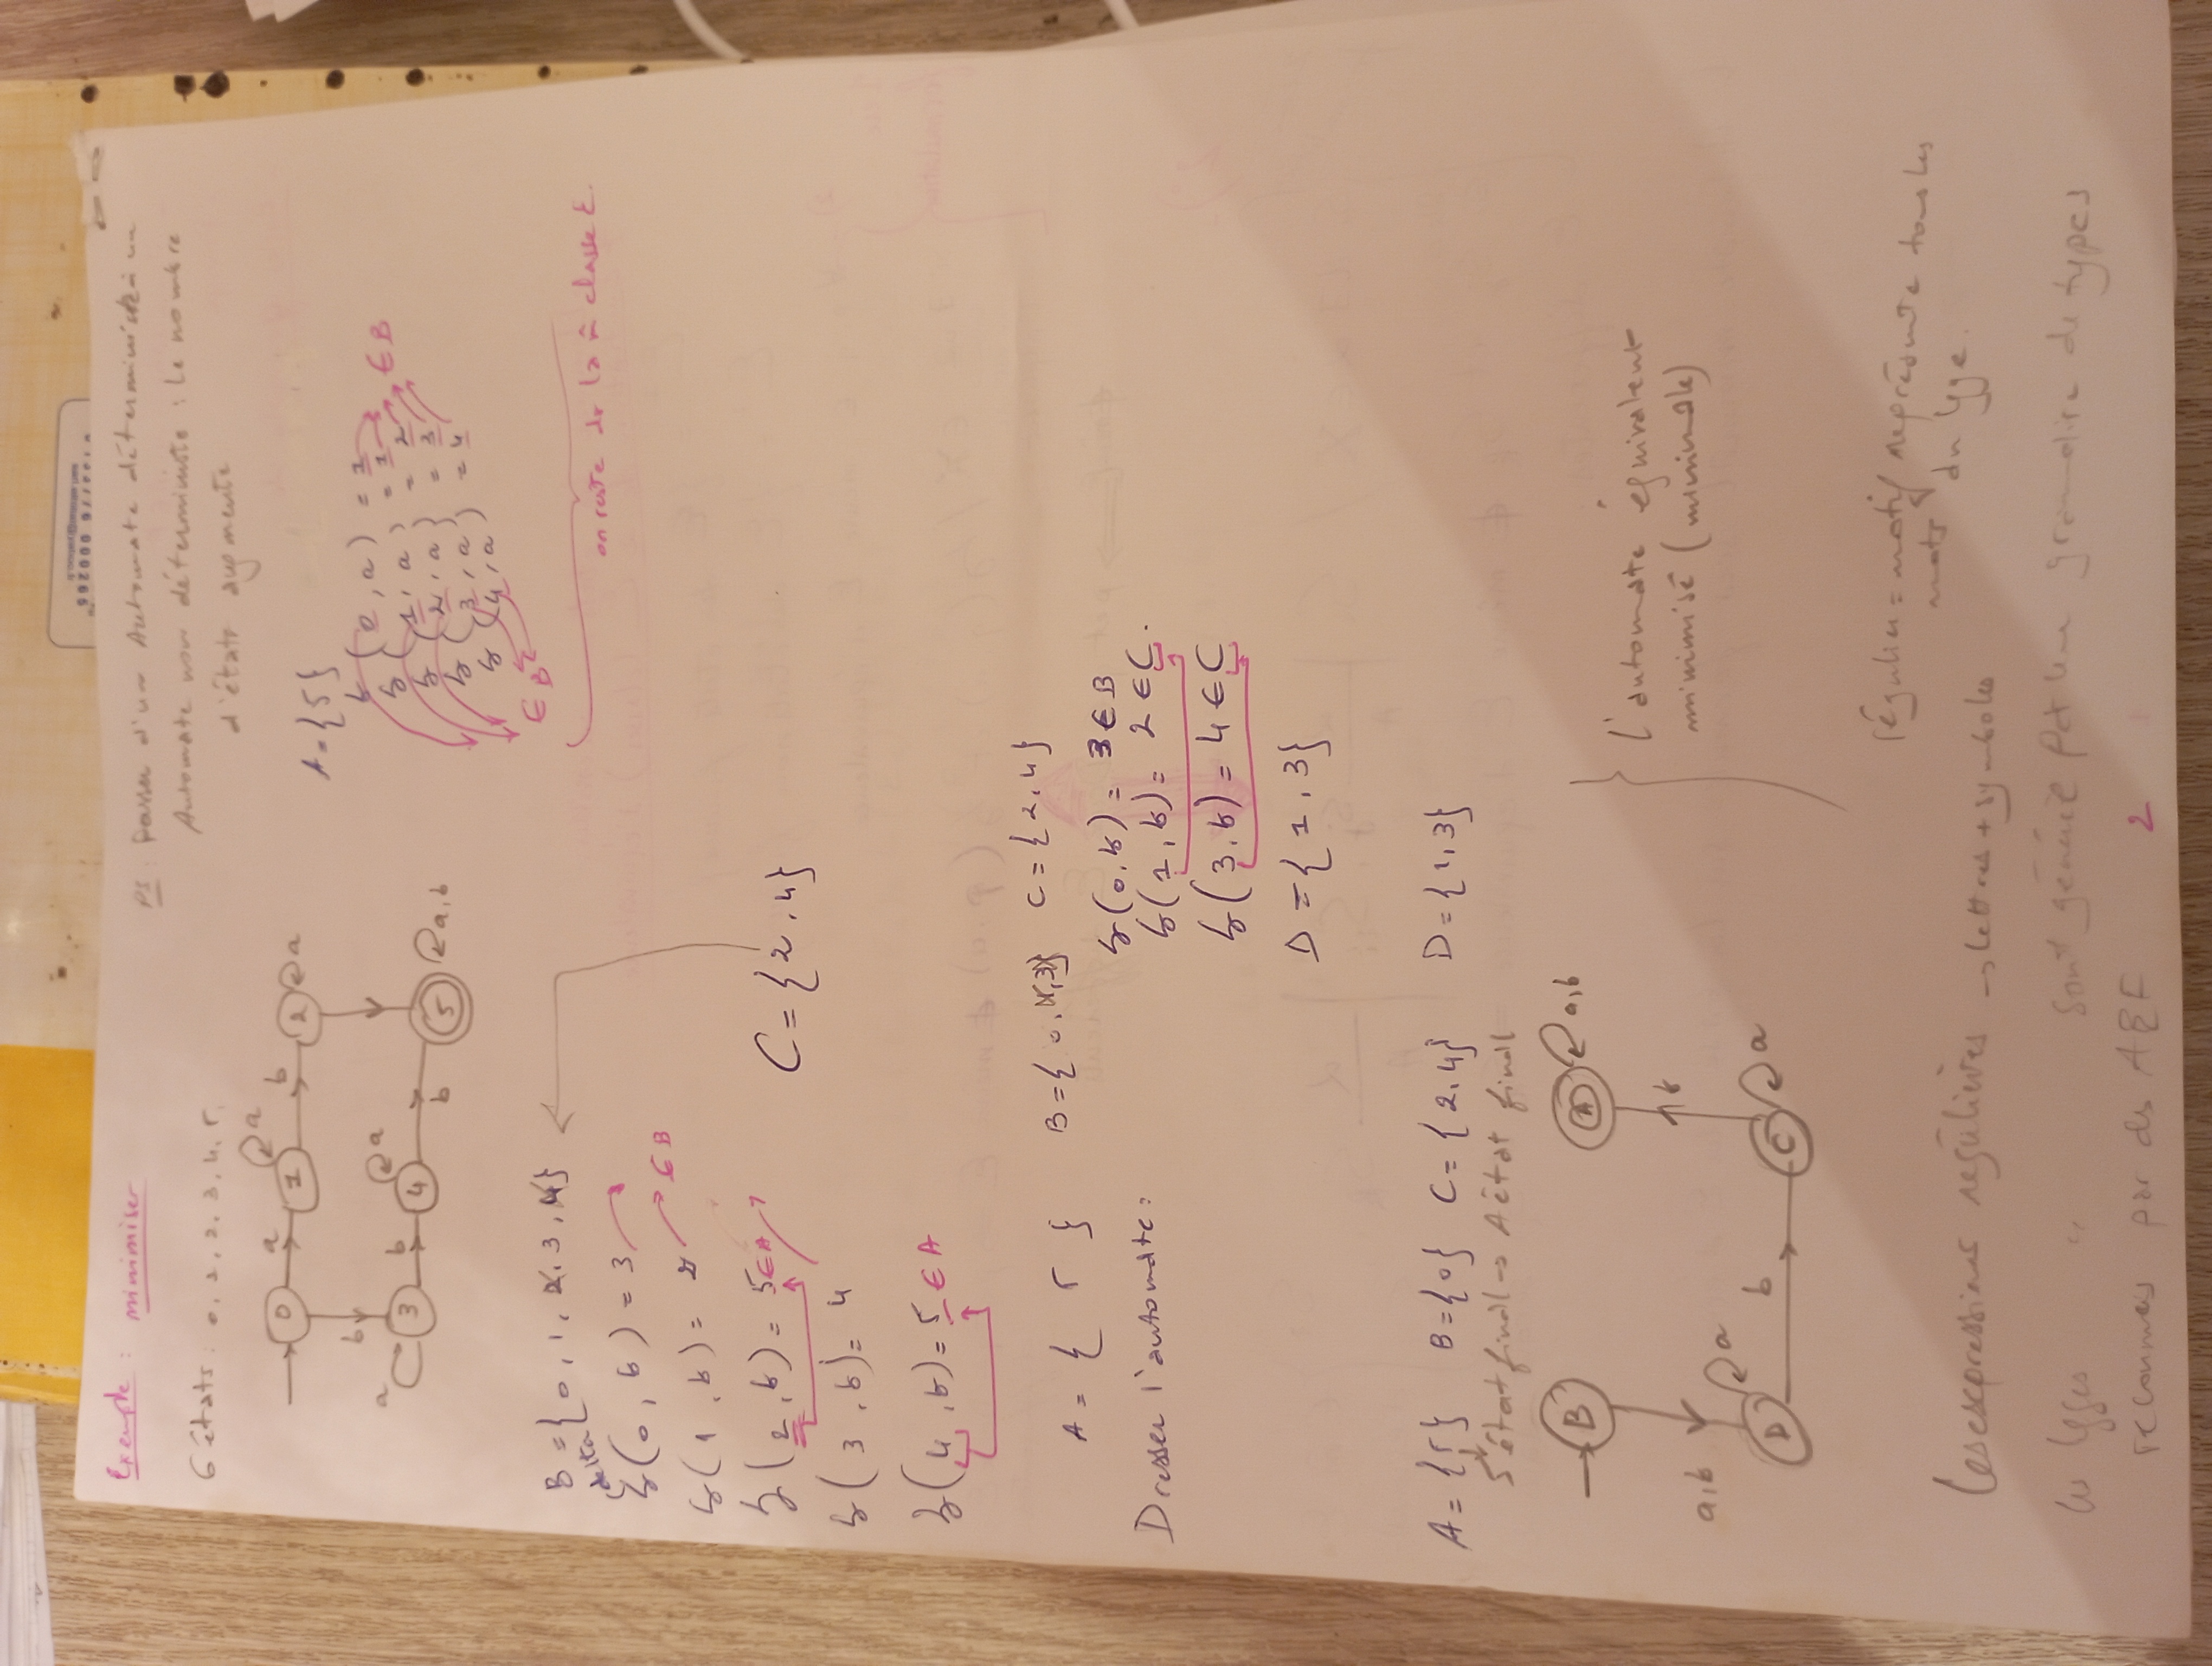 Exemple : minimiser
PS : Passer d'un Automate déterministe à un
Automate non déterministe : Le nombre
d'états augmente
6 états : 0, 1, 2, 3, 4, 5.
0 a 1 a b 2 a
b
a 3 b 4 a b 5 a,b
A = {5}
δ (0, a) = 1
δ (1, a) = 1
δ (2, a) = 2
δ (3, a) = 3
δ (4, a) = 4
∈ B
∈ B
on reste ds la m̂ classe E.
B = {0, 1, 2, 3, 4}
delta
δ(0, b) = 3
δ(1, b) = 2
∈ B
δ(2, b) = 5 ∈ A
C = {2, 4}
δ(3, b) = 4
δ(4, b) = 5 ∈ A
A = { 5 } B = {0, 1, 3} C = {2, 4}
δ(0, b) = 3 ∈ B
Dresser l'automate :
δ(1, b) = 2 ∈ C.
δ(3, b) = 4 ∈ C
D = {1, 3}
A = {5} B = {0} C = {2, 4} D = {1, 3}
5 état final → A état final
B A a,b
a,b b
D a b C a
l'automate équivalent
minimisé (minimale)
régulier = motif représente tous les
mots du lgge.
Les expressions régulières → lettres + symboles
les lgges " sont généré par une grammaire de types
reconnus par des AEF 2